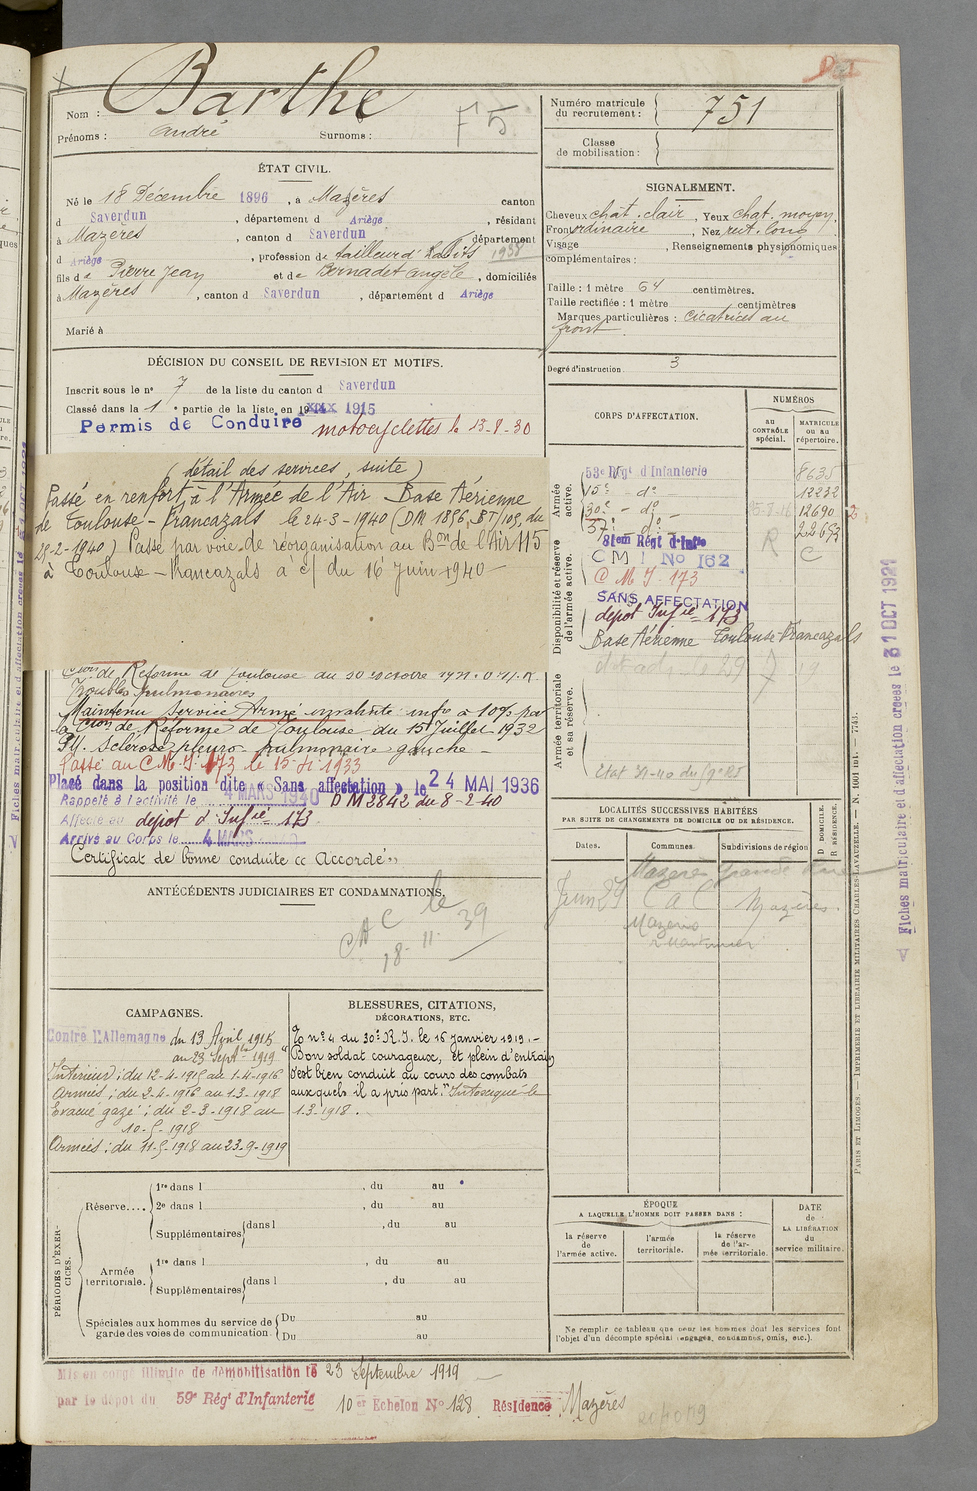 Nom : Barthe
Prénoms : André Surnoms :
F 5
Numéro matricule du recrutement : 751
Classe de mobilisation :
ÉTAT CIVIL.
Né le 18 Décembre 1896, à Mazères canton
d Saverdun, département d Ariège, résidant
à Mazères, canton d Saverdun département
d Ariège, profession de tailleur d'habits 1938
fils de Pierre Jean et de Bernadet Angèle, domiciliés
à Mazères, canton d Saverdun, département d Ariège
Marié à
SIGNALEMENT.
Cheveux chât. clair, Yeux chat. moyen.
Front ordinaire, Nez rect. long
Visage , Renseignements physionomiques
complémentaires :
Taille : 1 mètre 64 centimètres.
Taille rectifiée : 1 mètre centimètres
Marques particulières : cicatrices au
front
Degré d'instruction 3
DÉCISION DU CONSEIL DE REVISION ET MOTIFS.
Inscrit sous le n° 7 de la liste du canton d Saverdun
Classé dans la 1e partie de la liste en 1915
Permis de Conduire motocyclettes le 13-8-30
(détail des services, suite)
Passé en renfort à l'Armée de l'Air Base Aérienne
de Toulouse-Francazals le 24-3-1940 (DM 1856 BT/109 du
29-2-1940) Passé par voie de réorganisation au Bon de l'Air 115
à Toulouse-Francazals à c/ du 16 Juin 1940
de Réforme de Toulouse du
Troubles pulmonaires
Maintenu Service Armé invalidité infre à 10% par
la Cion de Réforme de Toulouse du 15 Juillet 1932
P.M. Sclérose pleuro-pulmonaire gauche -
Passé au C.M.I. 173 le 15-11-1933
Placé dans la position dite « Sans affectation » le 24 MAI 1936
Rappelé à l'activité le 4 MARS 1940 DM 2842 du 8-2-40
Affecté au dépôt d'Infie 173
Arrivé au Corps le 4 MARS
Certificat de bonne conduite "Accordé"
CORPS D'AFFECTATION.
NUMÉROS
AU CONTRÔLE spécial.
MATRICULE ou au répertoire.
Armée active.
53e Régt d'Infanterie 8635
15e - do 12232
30e - do - 12690
57e do - 22693
Disponibilité et réserve de l'armée active.
81em Régt d'Infie R C
CMI No 162
C M I. 173
SANS AFFECTATION
dépôt Infie 173
Base Aérienne Toulouse-Francazals
Armée territoriale et sa réserve.
LOCALITÉS SUCCESSIVES HABITÉES
PAR SUITE DE CHANGEMENTS DE DOMICILE OU DE RÉSIDENCE.
Dates.
Communes.
Subdivisions de région
D DOMICILE.
R RÉSIDENCE.
Mazères Grande Rue
Juin 29 C à C Mazères.
Mazères
ANTÉCÉDENTS JUDICIAIRES ET CONDAMNATIONS.
CAC le
18-11-39
CAMPAGNES.
Contre l'Allemagne du 13 Avril 1915
au 23 Septbre 1919
Intérieur : du 12-4-1915 au 1-4-1916
Armées : du 2-4-1916 au 1-3-1918
Evacué gazé : du 2-3-1918 au
10-5-1918
Armées : du 11-5-1918 au 23-9-1919
BLESSURES, CITATIONS,
DÉCORATIONS, ETC.
O n° 4 du 30e R.I. le 16 janvier 1919. -
"Bon soldat courageux, et plein d'entrain
s'est bien conduit au cours des combats
auxquels il a pris part." Intoxiqué le
1.3.1918.
PÉRIODES D'EXERCICES.
Réserve....
1re dans l , du au
2e dans l , du au
Supplémentaires dans l , du au
dans l
Armée territoriale.
1re dans l , du au
Supplémentaires dans l , du au
dans l
Spéciales aux hommes du service de garde des voies de communication.
Du au
Du au
ÉPOQUE
A LAQUELLE L'HOMME DOIT PASSER DANS :
la réserve de l'armée active.
l'armée territoriale.
la réserve de l'armée territoriale.
DATE de LA LIBÉRATION du service militaire.
Ne remplir ce tableau que pour les hommes dont les services font
l'objet d'un décompte spécial (engagés, condamnés, omis, etc.).
Mis en congé illimité de démobilisation le 23 Septembre 1919
par le dépôt du 59e Régt d'Infanterie 10er Echelon No 128 Résidence Mazères
PARIS ET LIMOGES. — IMPRIMERIE ET LIBRAIRIE MILITAIRES CHARLES-LAVAUZELLE. — N. 1001 int. — 7743.
V Fiches matriculaire et d'affectation créées le 31 OCT 1921